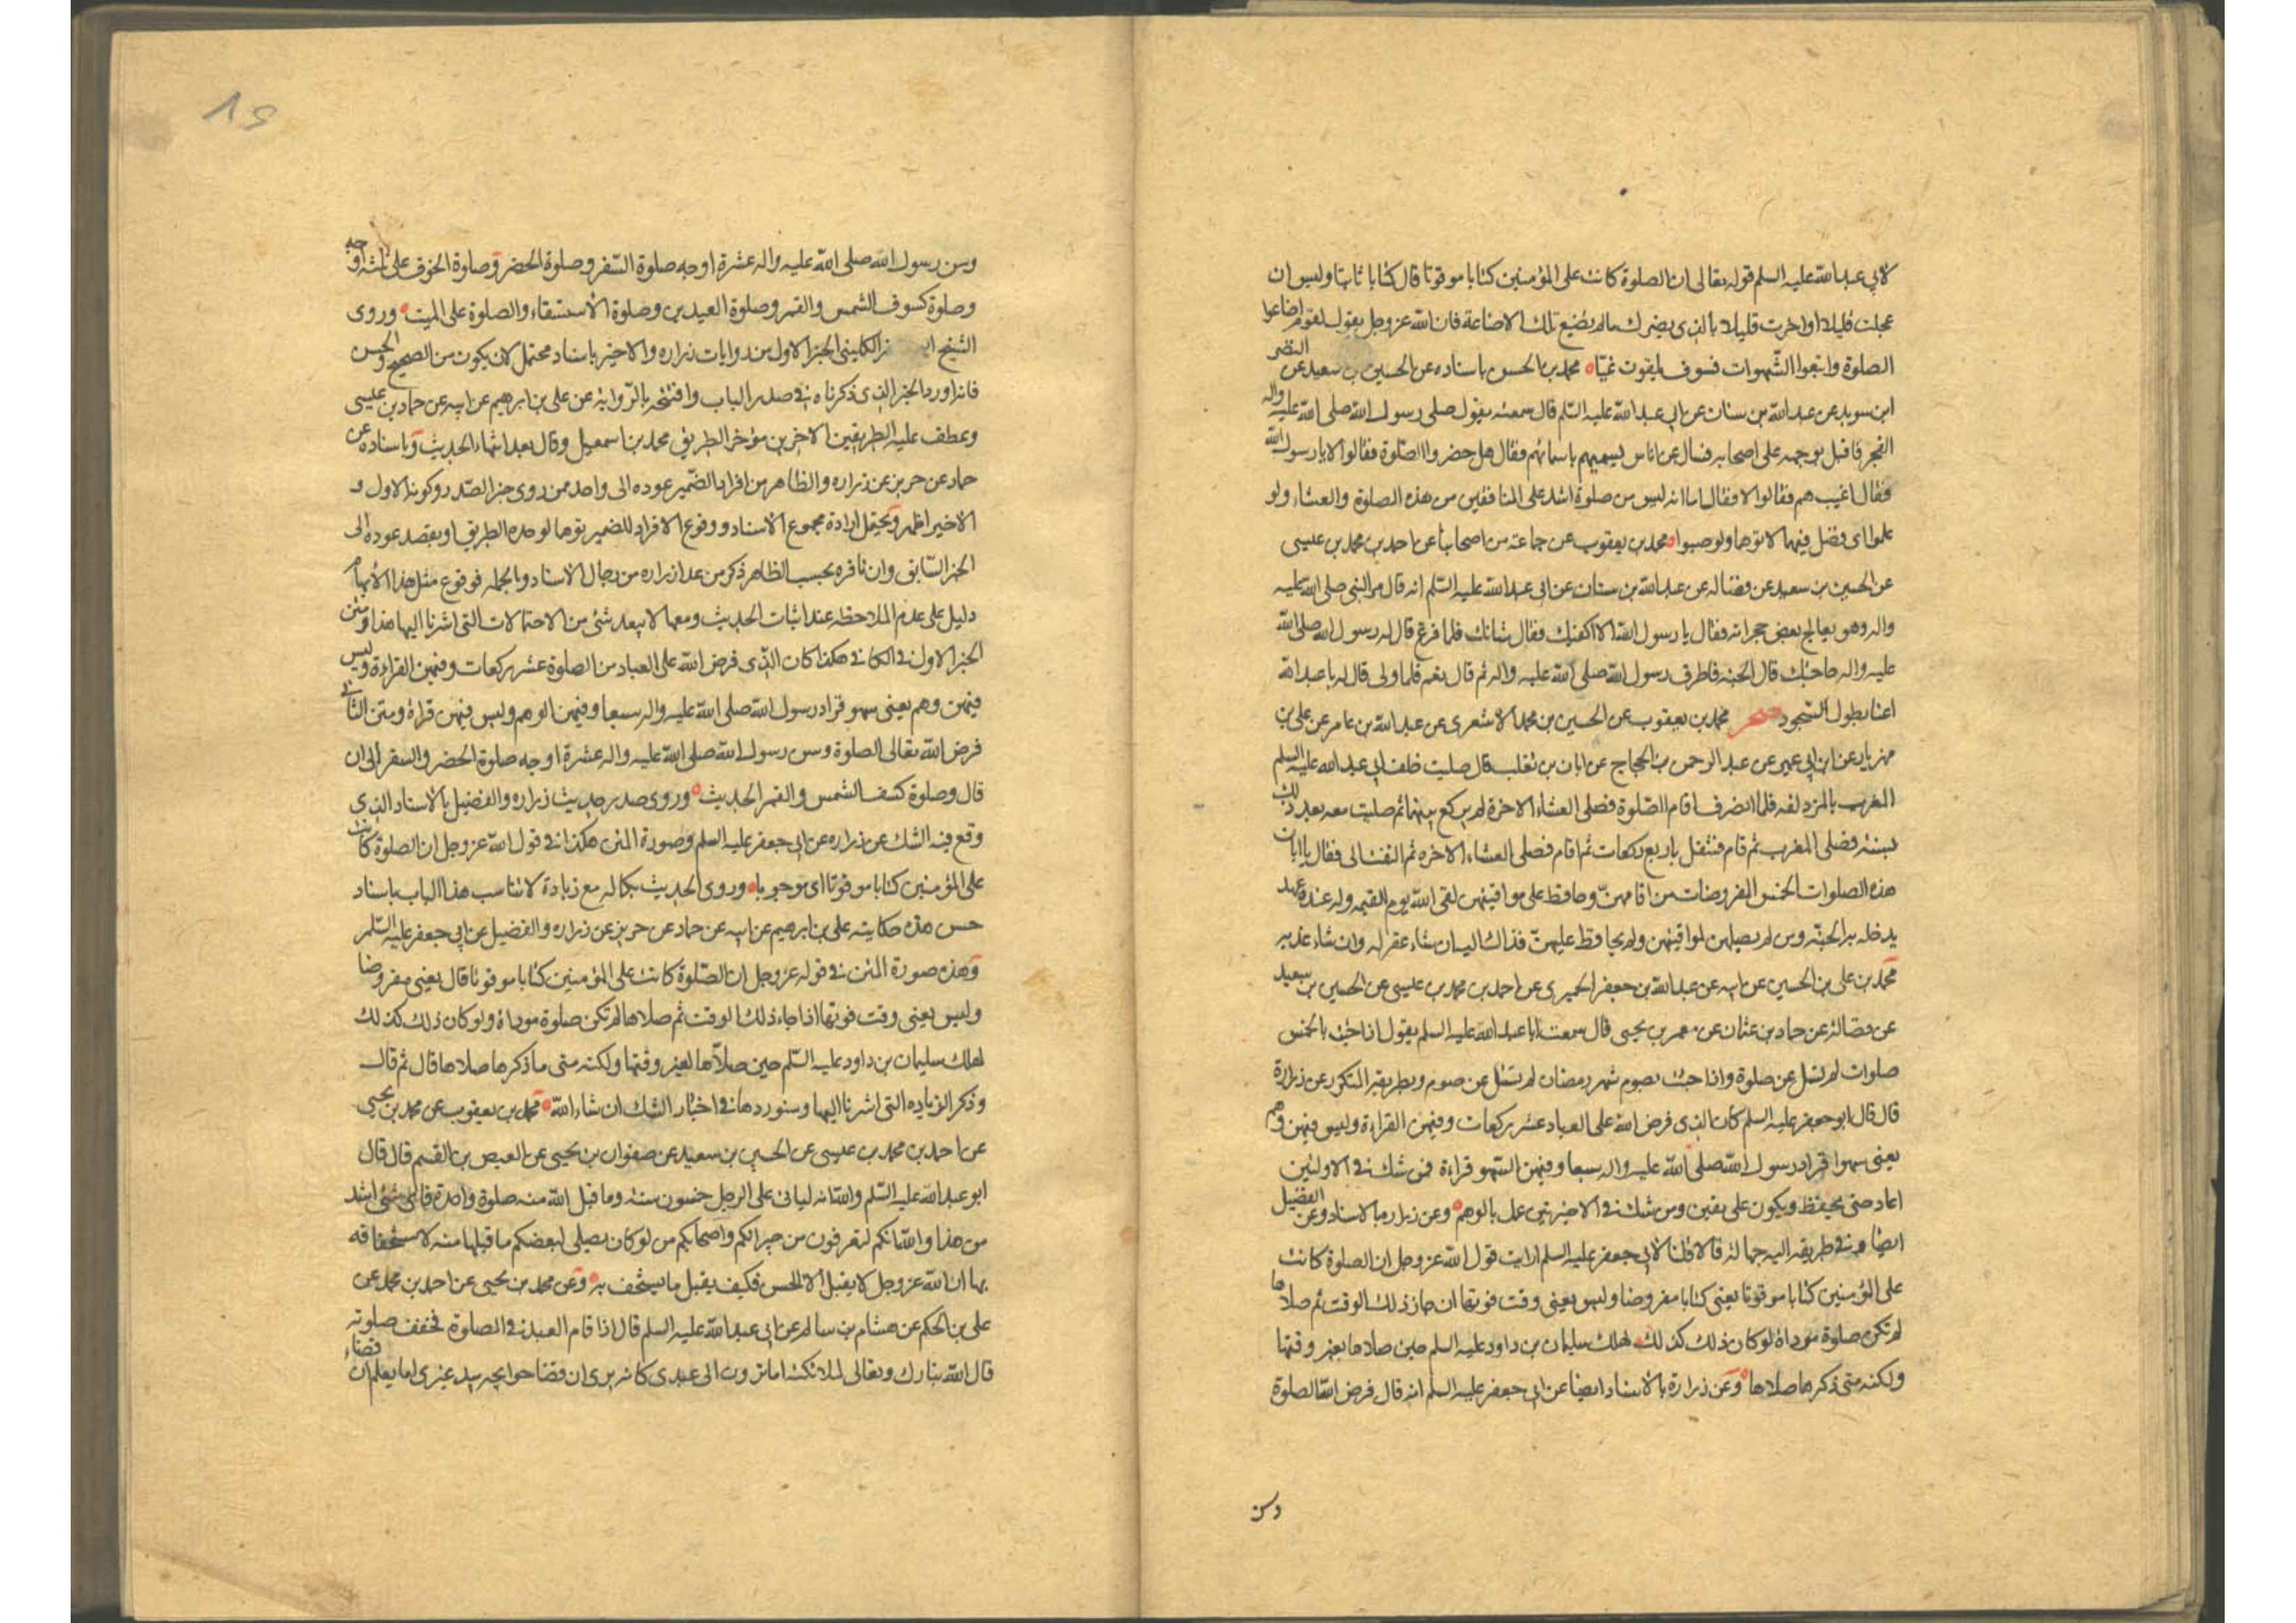 لابي عبدالله عليه السلم قوله تعالى ان الصلوة كانت على المؤمنين كتابا موقوتا قال كتابا ثابتا وليس ان
عجلت قليلا او اخرت قليلا بالذي يضرك مالم يضيع تلك الاضاعة فان الله عز وجل يقول لقوم اضاعوا
الصلوة واتبعوا الشهوات فسوف يلقون غيا محمد بن الحسن باسناده عن الحسين بن سعيد عن النضر
ابن سويد عن عبدالله بن سنان عن ابي عبدالله عليه السلم قال سمعته يقول صلى رسول الله صلى الله عليه واله
الفجر فاقبل بوجهه على اصحابه فسال عن اناس يسميهم باسمائهم فقال هل حضروا الصلوة فقالوا لا يا رسول الله
فقال اغيب هم فقالوا لا فقال اما انه ليس من صلوة اشد على المنافقين من هذه الصلوة والعشاء ولو
علموا اي فضل فيهما لاتوهما ولو حبوا محمد بن يعقوب عن جماعة من اصحابنا عن احمد بن محمد بن عيسى
عن الحسين بن سعيد عن فضاله عن عبدالله بن سنان عن ابي عبدالله عليه السلم انه قال مر النبي صلى الله عليه
واله وهو يعالج بعض حجراته فقال يا رسول الله الا اكفيك فقال شانك فلما فرغ قال له رسول الله صلى الله
عليه واله حاجتك قال الجنة فاطرق رسول الله صلى الله عليه واله ثم قال نعم فلما ولى قال له يا عبدالله
اعنا بطول السجود محمد بن يعقوب عن الحسين بن محمد الاشعري عن عبدالله بن عامر عن علي بن
مهزيار عن ابن ابي عمير عن عبد الرحمن بن الحجاج عن ابان بن تغلب قال صليت خلف ابي عبد الله عليه السلم
المغرب بالمزدلفه فلما انصرف اقام الصلوة فصلى العشاء الاخرة لم يركع بينهما ثم صليت معه بعد ذلك
بسنة فصلى المغرب ثم قام فتنفل باربع ركعات ثم اقام فصلى العشاء الاخره ثم التفت الى فقال يا ابان
هذه الصلوات الخمس المفروضات من اقامهن وحافظ على مواقيتهن لقى الله يوم القيمه وله عنده عهد
يدخله به الجنة ومن لم يصلهن لمواقيتهن ولم يحافظ عليهن فذاك اليه ان شاء غفر له وان شاء عذبه
محمد بن علي بن الحسين عن ابيه عن عبدالله بن جعفر الحميري عن احمد بن محمد بن عيسى عن الحسين بن سعيد
عن فضالة عن حماد بن عثمان عن معمر بن يحيى قال سمعت ابا عبدالله عليه السلم يقول اذا جئت بالخمس
صلوات لم تسل عن صلوة واذا جئت بصوم شهر رمضان لم تسئل عن صوم وبطريقه المتكرر عن زرارة
قال قال ابو جعفر عليه السلم كان الذي فرض الله على العباد عشر ركعات وفيهن القراءة وليس فيهن وهم
يعني سهوا فزاد رسول الله صلى الله عليه واله سبعا وفيهن السهو قراءة فمن شك في الاولتين
اعاد حتى يحفظ ويكون على يقين ومن شك في الاخيرتين عمل بالوهم وعن زراره بالاسناد وعن الفضيل
ايضا وفي طريقه اليه جهالة قالا قلنا لابي جعفر عليه السلم ارايت قول الله عز وجل ان الصلوة كانت
على المؤمنين كتابا موقوتا يعني كتابا مفروضا وليس يعني وقت فوتها ان جاز ذلك الوقت ثم صلاها
لم تكن صلوة موداة لو كان ذلك كذلك لهلك سليمان بن داود عليه السلم حين صلاها بغير وقتها
ولكنه متى ذكرها صلاها وعن زرارة بالاسناد ايضا عن ابي جعفر عليه السلم انه قال فرض الله الصلوة
وسن
وسن رسول الله صلى الله عليه واله عشرة اوجه صلوة السفر وصلوة الحضر وصلوة الخوف على ثلثه اوجه
وصلوة كسوف الشمس والقمر وصلوة العيدين وصلوة الاستسقاء والصلوة على الميت وروى
الشيخ الكليني الخبر الاول من روايات زراره والاخير باسناد محتمل لان يكون من الصحيح والحسن
فانه اورد الخبر الذي ذكرناه في صدر الباب وافتتحه بالرواية عن علي بن ابرهيم عن ابيه عن حماد بن عيسى
وعطف عليه الطريقين الاخرين مؤخر الطريق محمد بن اسمعيل وقال بعد انهاء الحديث وباسناده عن
حماد عن حريز عن زراره والظاهر من افراد الضمير عوده الى واحد ممن روى خبر الصدر وكونه الاول و
الاخير اظهر ويحتمل ارادة مجموع الاسناد ووقوع الافراد للضمير توهما لوحده الطريق او بقصد عوده الى
الخبر السابق وان نافره بحسب الظاهر ذكر من عدا زراره من رجال الاسناد وبالجمله فوقوع مثل هذا الابهام
دليل على عدم الملاحظه عند اثبات الحديث ومعها لا يبعد شئ من الاحتمالات التي اشرنا اليها هذا ومتن
الخبر الاول في الكافي هكذا كان الذي فرض الله على العباد من الصلوة عشر ركعات وفيهن القراءة وليس
فيهن وهم يعني سهو فزاد رسول الله صلى الله عليه واله سبعا وفيهن الوهم وليس فيهن قراءة ومتن الثاني
فرض الله تعالى الصلوة وسن رسول الله صلى الله عليه واله عشرة اوجه صلوة الحضر والسفر الى ان
قال وصلوة كسف الشمس والقمر الحديث وروى صدر حديث زراره والفضيل بالاسناد الذي
وقع فيه الشك عن زراره عن ابي جعفر عليه السلم وصورة المتن هكذا في قول الله عز وجل ان الصلوة كانت
على المؤمنين كتابا موقوتا اي موجوبا وروى الحديث بكماله مع زيادة لا تناسب هذا الباب باسناد
حسن هذه حكايته علي بن ابرهيم عن ابيه عن حماد عن حريز عن زراره والفضيل عن ابي جعفر عليه السلم
وهذه صورة المتن في قوله عز وجل ان الصلوة كانت على المؤمنين كتابا موقوتا قال يعني مفروضا
وليس يعني وقت فوتها اذا جاء ذلك الوقت ثم صلاها لم تكن صلوة موداة ولو كان ذلك كذلك
لهلك سليمان بن داود عليه السلم حين صلاها لغير وقتها ولكنه متى ما ذكرها صلاها قال ثم قال
وذكر الزياده التي اشرنا اليها وسنوردها في اخبار الشك ان شاء الله محمد بن يعقوب عن محمد بن يحيى
عن احمد بن محمد بن عيسى عن الحسين بن سعيد عن صفوان بن يحيى عن العيص بن القسم قال قال
ابو عبدالله عليه السلم والله انه لياتي على الرجل خمسون سنة وما قبل الله منه صلوة واحدة فاي شئ اشد
من هذا والله انكم لتعرفون من جيرانكم واصحابكم من لو كان يصلي لبعضكم ما قبلها منه لاستخفافه
بها ان الله عز وجل لا يقبل الا الحسن فكيف يقبل ما يستخف به وعن محمد بن يحيى عن احمد بن محمد عن
علي بن الحكم عن هشام بن سالم عن ابي عبدالله عليه السلم قال اذا قام العبد في الصلوة فخفف صلوته
قال الله تبارك وتعالى لملائكته اما ترون الى عبدي كانه يرى ان قضا حوايجه بيد غيري اما يعلم ان قضاء